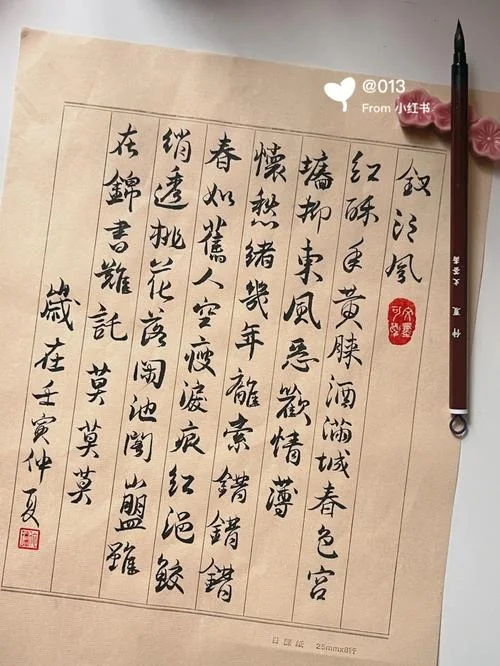 釵頭鳳
紅酥手黄縢酒滿城春色宫
墻柳東風惡歡情薄
懷愁緒幾年離索錯錯錯
春如舊人空瘦淚痕紅浥鮫
綃透桃花落閑池閣山盟雖
在錦書難託莫莫莫
歲在壬寅仲夏
日課紙 25mmx8行
仲夏
@013
From 小红书